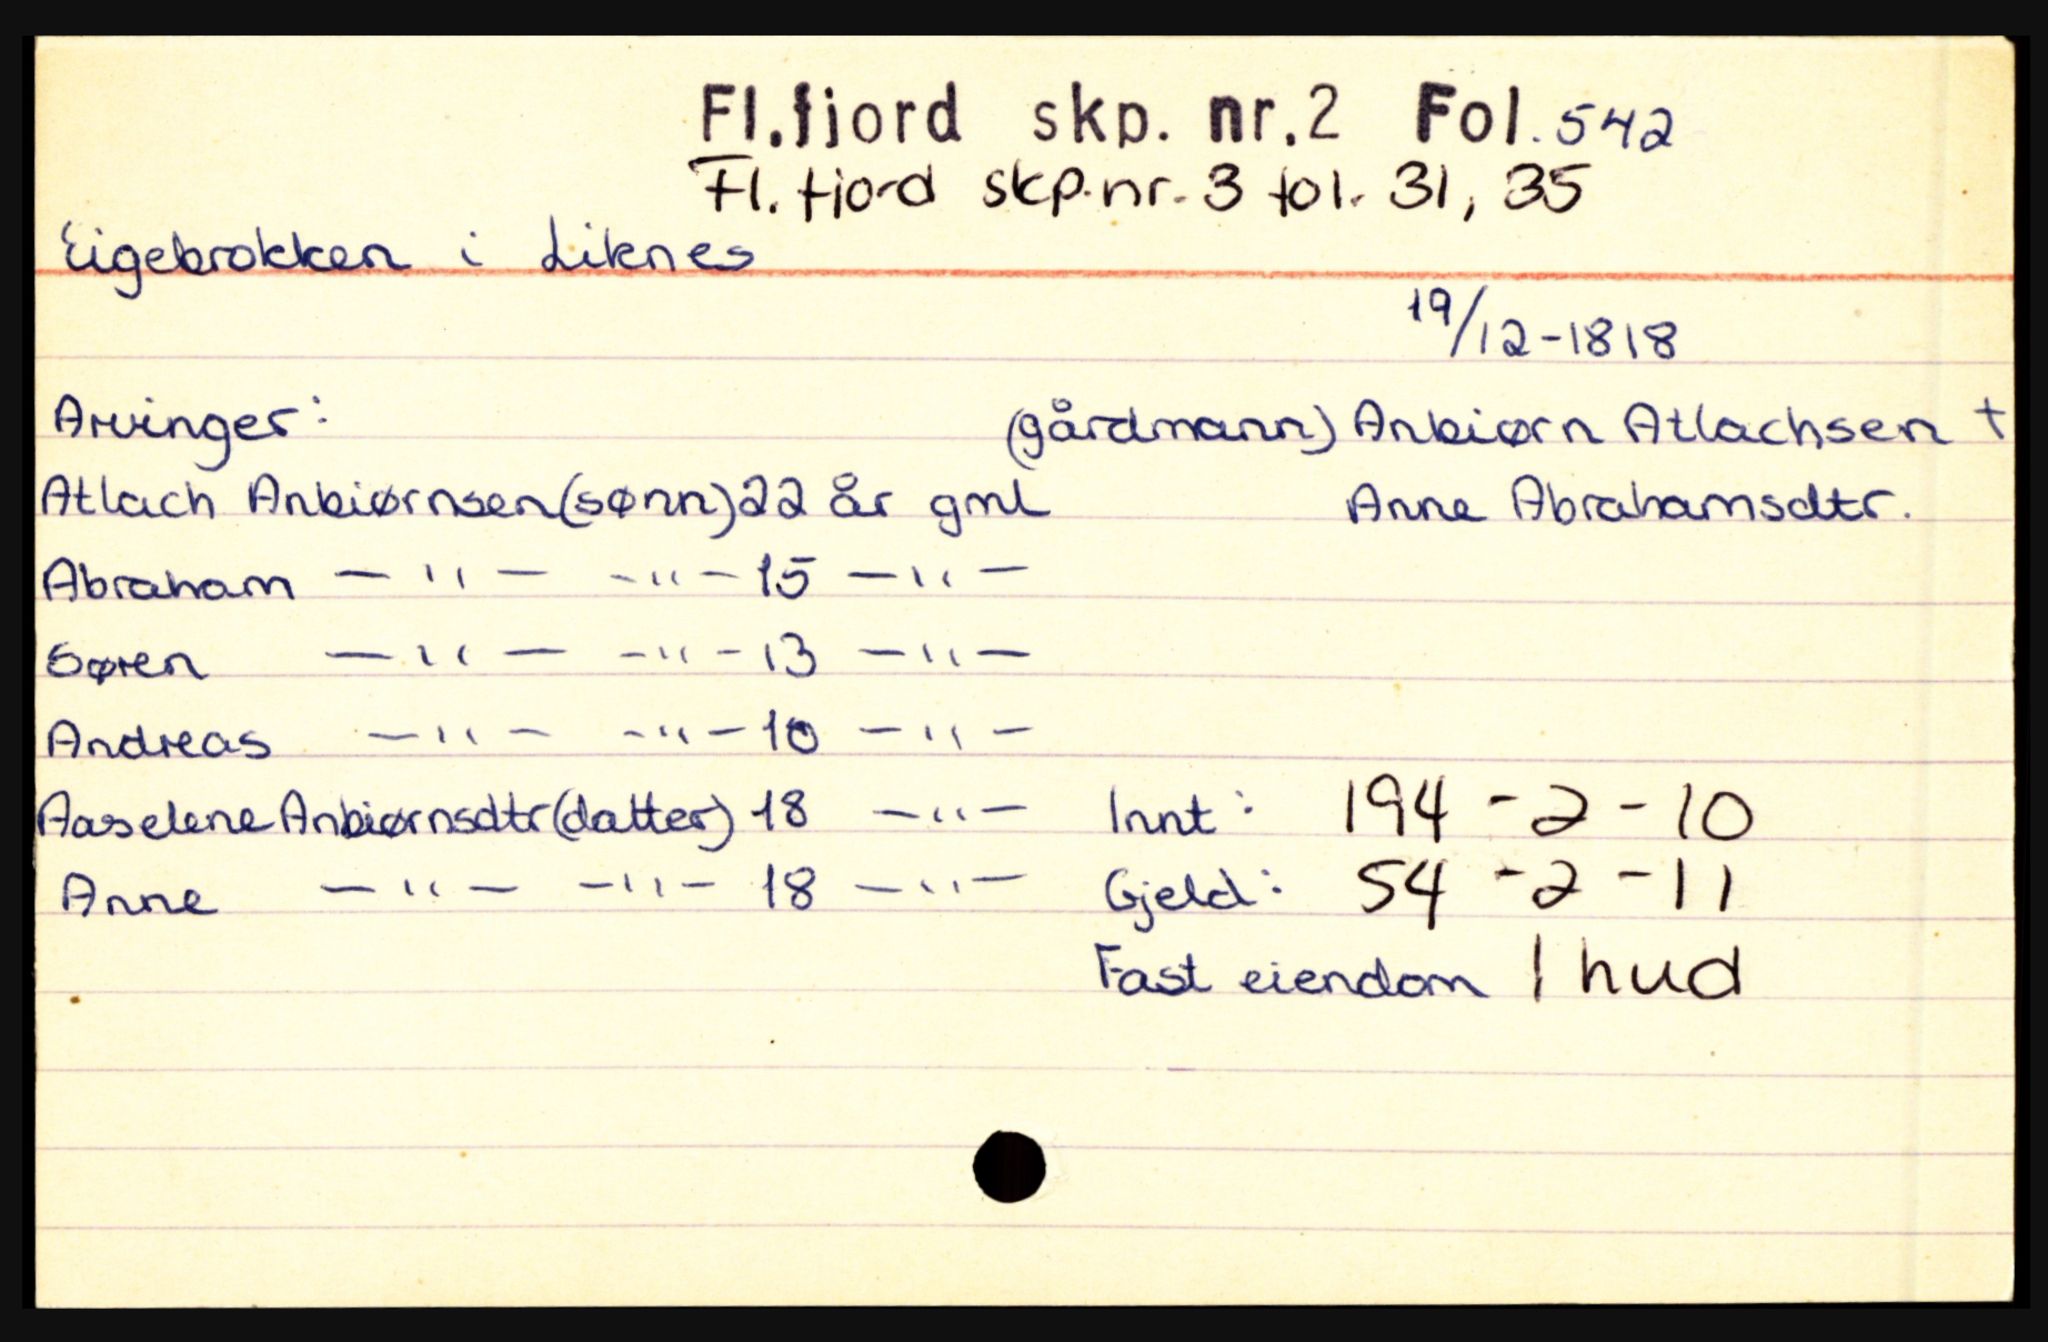 Fl.fjord skp. nr.2 Fol. 542
Fl.fjord skp.nr. 3 fol. 31, 35
Eigebrokken i Liknes
19/12-1818
Arvinger:
(gårdmann) Anbiørn Atlachsen +
Atlach Anbiørnsen (sønn) 22 år gml
Anne Abrahamsdtr.
Abraham —"— -"- 15 —"—
Søren —"— -"- 13 —"—
Andreas —"— -"- 10 —"—
Aaselene Anbiørnsdtr (datter) 18 —"—
Innt: 194 - 2 - 10
Anne —"— -"- 18 —"—
Gjeld: 54 - 2 - 11
Fast eiendom 1 hud